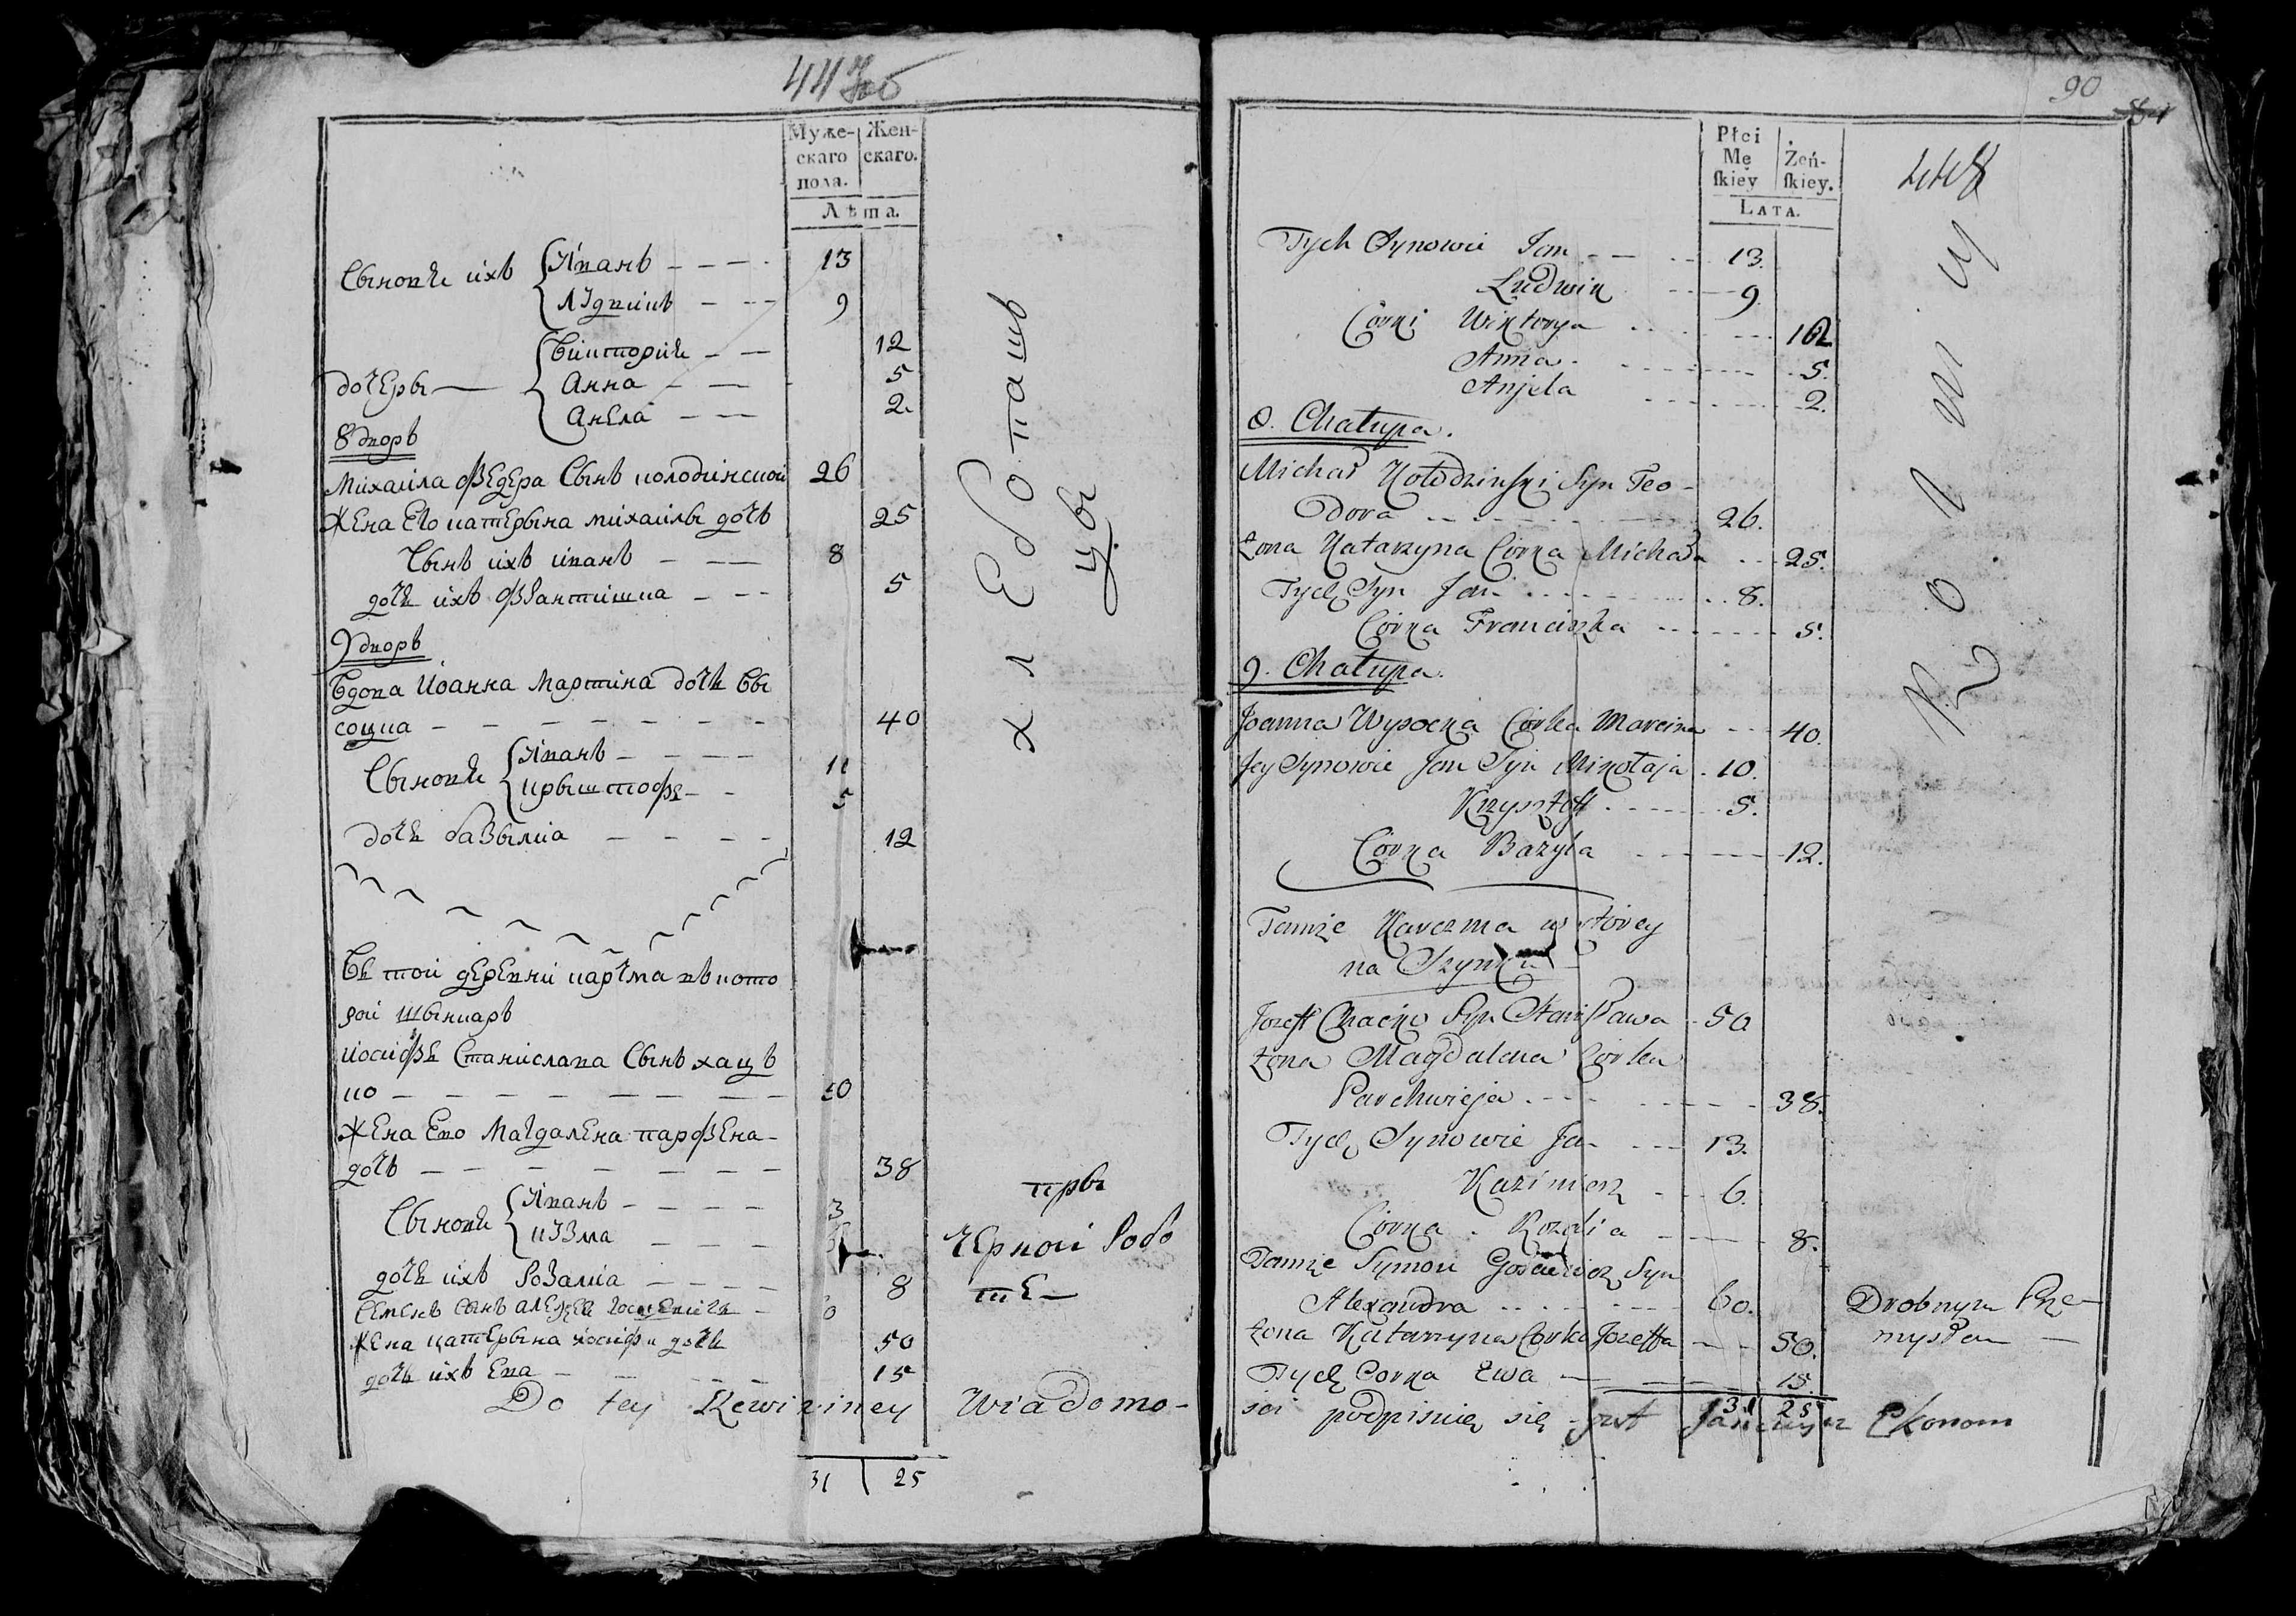 Муже-
скаго
пола.
Жен-
скаго.
Лѣта.
Сыновѣ ихъ Иванъ 13
Лудвикъ 9
дочеры Викториѣ 12
Анна 5
Анела 2
8 дворъ
Михаила Ѳедера Сынъ колодинской 26
Жена Его катерына михаилы дочъ 25
Сынъ ихъ иванъ 8
дочѣ ихъ Францишка 5
9 дворъ
Вдова Иоанна Мартина дочѣ Вы
соцка 40
Сыновѣ Иванъ 11
крыштофъ 5
дочѣ базылка 12
Вѣ той деревни карчма въ кото
рой шынкаръ
иосифѣ Станислава Сынъ хацъ
ко 50
Жена Ево Магдалена парфена
дочъ 38
Сыновѣ Иванъ
кузма
дочѣ ихъ Розалиа 8
Жена катерына иосифа дочѣ 50
дочъ ихъ Ева 15
хлебопаш
цы
пры
черной Робо
те
Do tey Rewizyiney Wiadomo-
31 25
90
Płci
Mę
ſkiey
Żeń-
ſkiey.
Lata.
448
Tych Synowie Jan 13.
Ludwik 9
Corki Wiktorya 12
Anna 5.
Anjela 2.
8. Chałupa.
Michał Kołodzinſki Syn Teo-
dora 26.
Żona Katarzyna Corka Michała 25.
Tych Syn Jan 8.
Corka Franciszka 5.
9. Chałupa.
Joanna Wysocka Corka Marcina 40.
Jey Synowie Jan Syn Mikołaja 10.
Krzysztoff 5.
Corka Bazyla 12.
Tamże Karczma w ktorey
na Szynku
Jozeff Chacko Syn Stanisława 50
Żona Magdalena Corka
Parchwieja 38.
Tych Synowie Jan 13.
Kazimierz 6.
Corka Rozalia 8.
Tamże Symon Syn
Alexandra 60.
Żona Katarzyna Corka Jozeffa 50.
Tych Corka Ewa 15.
31 25
Rolnicy
Drobnym Prze-
mysłem
sci podpisuię się Ekonom